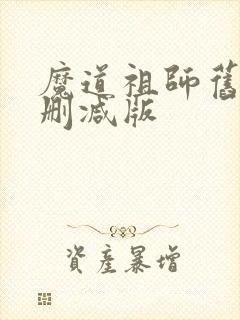 魔道祖師舊
刪減版
資產暴增